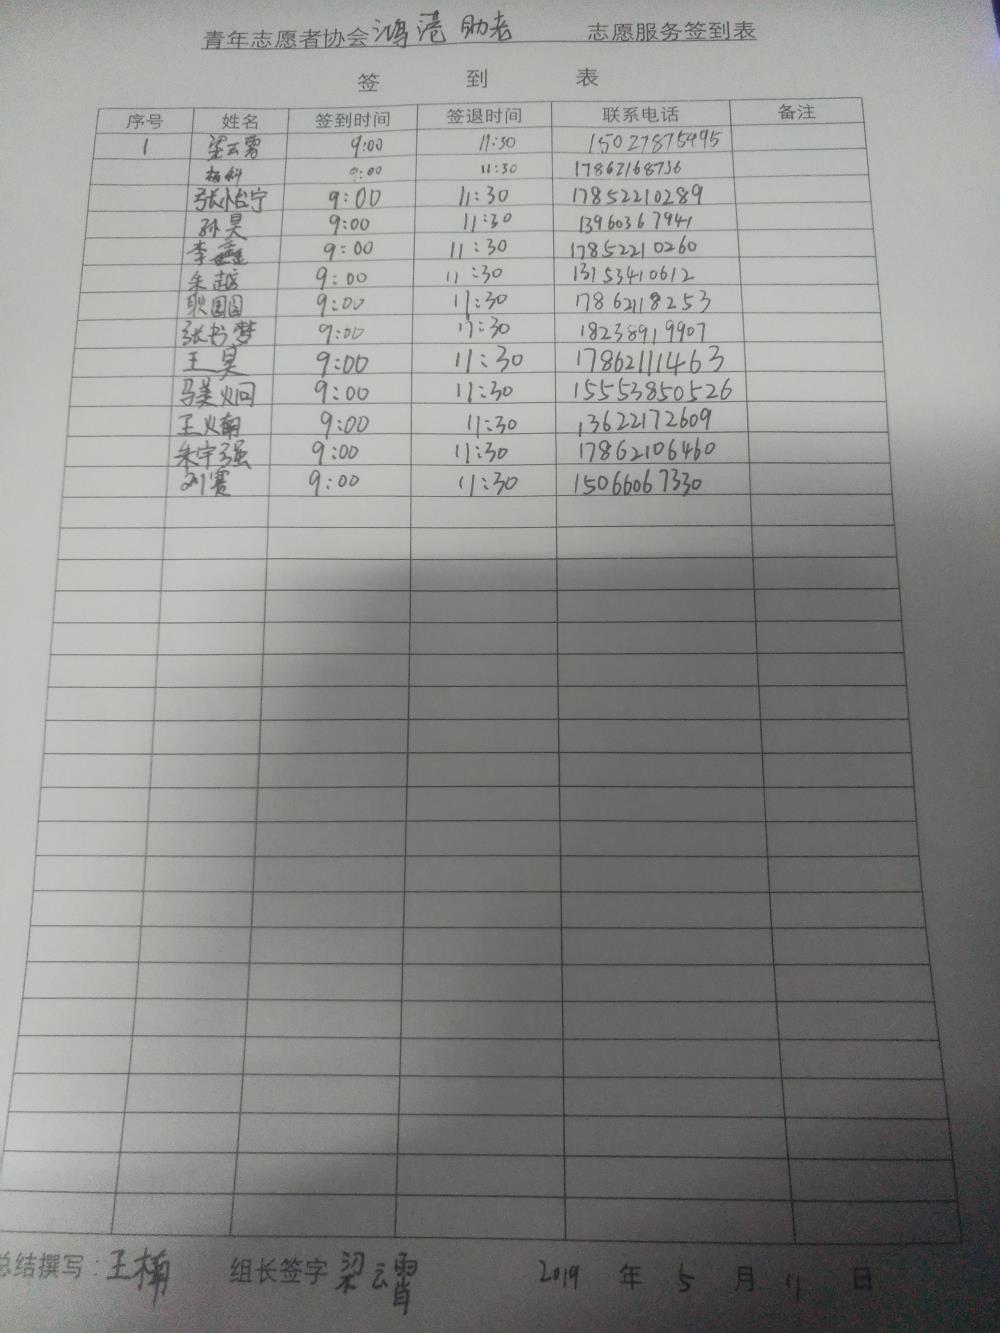 青年志愿者协会鸿港助老 志愿服务签到表
签 到 表
序号 姓名 签到时间 签退时间 联系电话 备注
1 梁云霄 9:00 11:30 15027875495
杨科 9:00 11:30 17862168736
张怡宁 9:00 11:30 17852210289
孙昊 9:00 11:30 13960367941
李鑫 9:00 11:30 17852210260
朱越 9:00 11:30 13153410612
耿圆圆 9:00 11:30 17862118253
张书梦 9:00 11:30 18238919907
王昊 9:00 11:30 17862111463
马美炯 9:00 11:30 15553850526
王楠 9:00 11:30 13622172609
朱宇强 9:00 11:30 17862106460
刘赛 9:00 11:30 15066067330
总结撰写:王楠 组长签字 梁云霄 2019 年 5 月 11 日